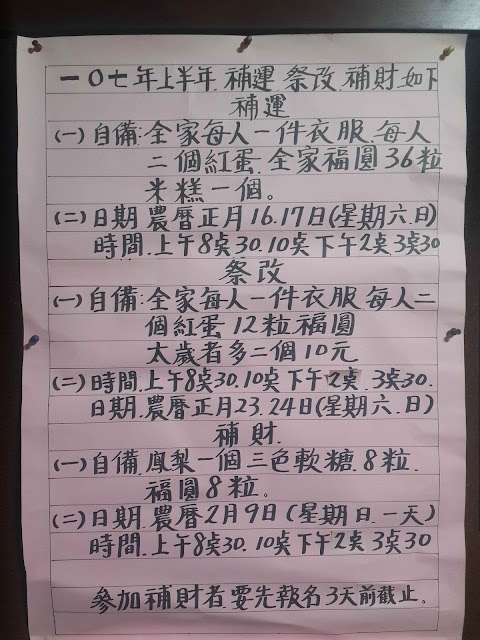 一0七年上半年.補運.祭改.補財.如下
補運
(一)自備:全家每人一件衣服.每人
二個紅蛋.全家福圓36粒
米糕一個。
(二)日期.農曆正月16.17日(星期六.日)
時間.上午8点30.10点下午2点3点30
祭改
(一)自備:全家每人一件衣服.每人二
個紅蛋.12粒福圓
太歲者多二個10元
(二)時間.上午8点30.10点下午2点.3点30.
日期.農曆正月23.24日(星期六.日)
補財.
(一)自備.鳳梨一個三色軟糖.8粒.
福圓8粒。
(二)日期.農曆2月9日(星期日.一天)
時間.上午8点30.10点下午2点3点30
參加補財者要先報名3天前截止。